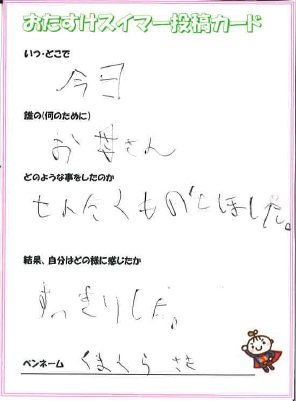 おたすけスイマー投稿カード
いつ・どこで
今日
誰の(何のために)
お母さん
どのような事をしたのか
せんたくものをほした。
結果、自分はどの様に感じたか
すっきりした。
ペンネーム くまくら さき